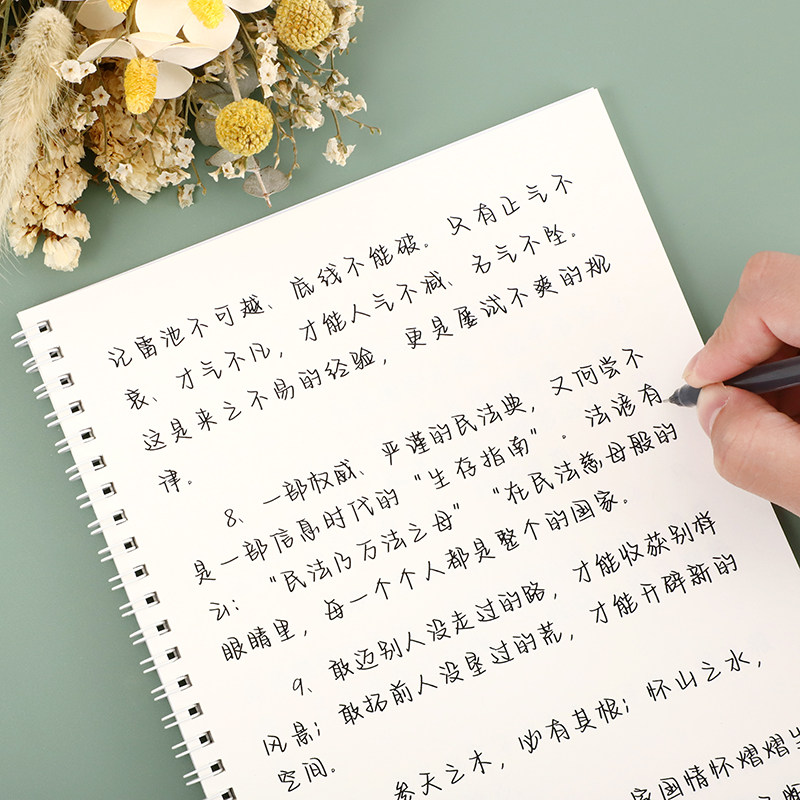 记雷池不可越、底线不能破。只有正气不
衰、才气不凡,才能人气不减、名气不坠。
这是来之不易的经验,更是屡试不爽的规
律。
8、一部权威、严谨的民法典,又何尝不
是一部信息时代的“生存指南”。法谚有
云:“民法乃万法之母”“在民法慈母般的
眼睛里,每一个个人都是整个的国家。
9、敢迈别人没走过的路,才能收获别样
风景;敢拓前人没垦过的荒,才能开辟新的
空间。
参天之木,必有其根;怀山之水,
家国情怀熠熠